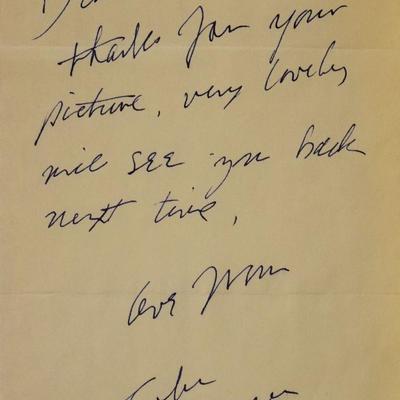 thanks for your
picture, very lovely
will see you back
next time,
love